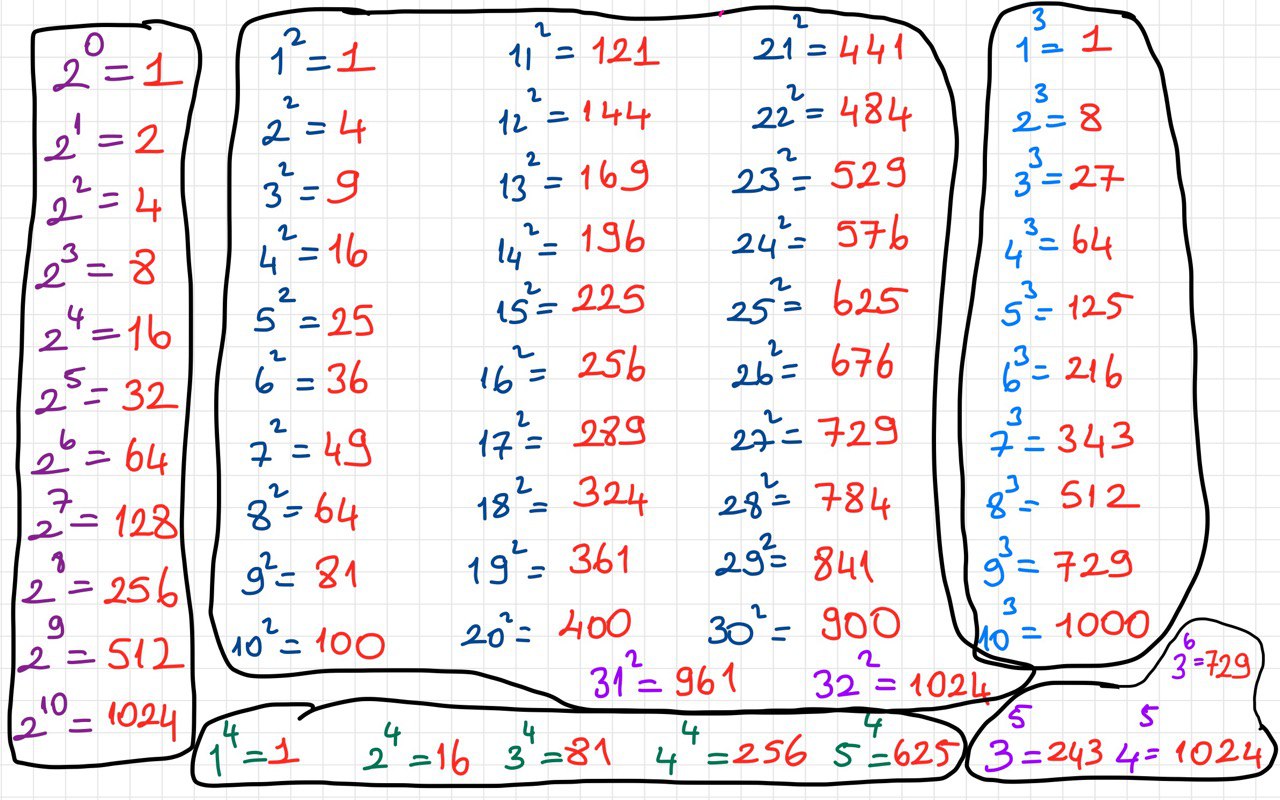 2⁰ = 1
2¹ = 2
2² = 4
2³ = 8
2⁴ = 16
2⁵ = 32
2⁶ = 64
2⁷ = 128
2⁸ = 256
2⁹ = 512
2¹⁰ = 1024
1² = 1
2² = 4
3² = 9
4² = 16
5² = 25
6² = 36
7² = 49
8² = 64
9² = 81
10² = 100
11² = 121
12² = 144
13² = 169
14² = 196
15² = 225
16² = 256
17² = 289
18² = 324
19² = 361
20² = 400
21² = 441
22² = 484
23² = 529
24² = 576
25² = 625
26² = 676
27² = 729
28² = 784
29² = 841
30² = 900
31² = 961 32² = 1024
1³ = 1
2³ = 8
3³ = 27
4³ = 64
5³ = 125
6³ = 216
7³ = 343
8³ = 512
9³ = 729
10³ = 1000
1⁴ = 1 2⁴ = 16 3⁴ = 81 4⁴ = 256 5⁴ = 625
3⁶ = 729
3⁵ = 243 4⁵ = 1024